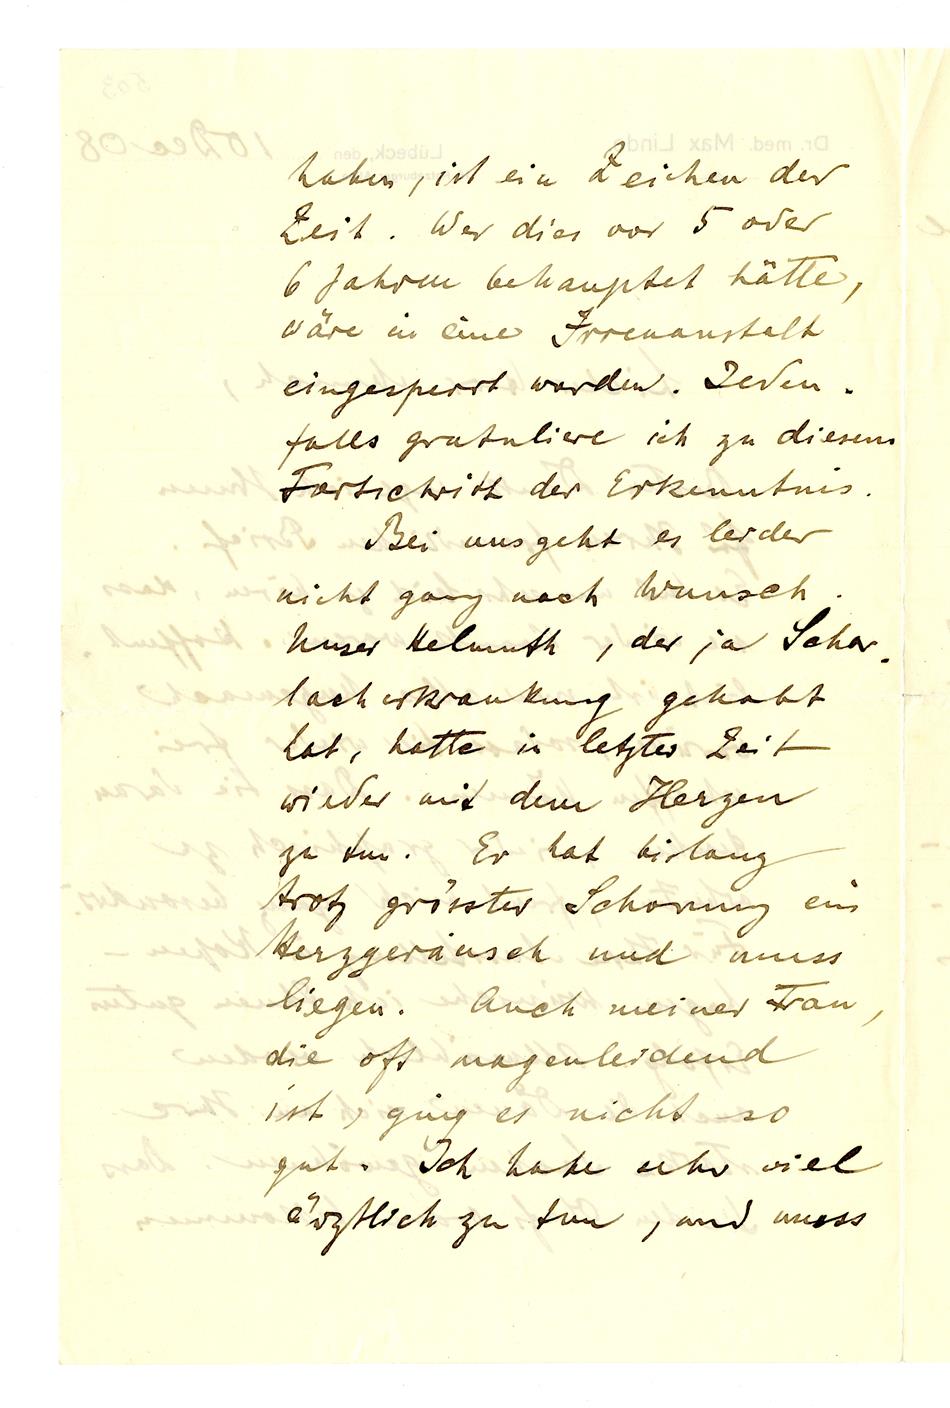 haben, ist ein Zeichen der
Zeit. Wer dies vor 5 oder
6 Jahren behauptet hätte,
wäre in eine Irrenanstalt
eingesperrt worden. Jeden-
falls gratuliere ich zu diesem
Fortschritt der Erkenntnis.
Bei uns geht es leider
nicht ganz nach Wunsch.
Unser Helmuth, der ja Schar-
lacherkrankung gehabt
hat, hatte in letzter Zeit
wieder mit dem Herzen
zu tun. Er hat bislang
trotz grösster Schonung ein
Herzgeräusch und muss
liegen. Auch meiner Frau,
die oft magenleidend
ist, ging es nicht so
gut. Ich habe sehr viel
ärztlich zu tun, und muss